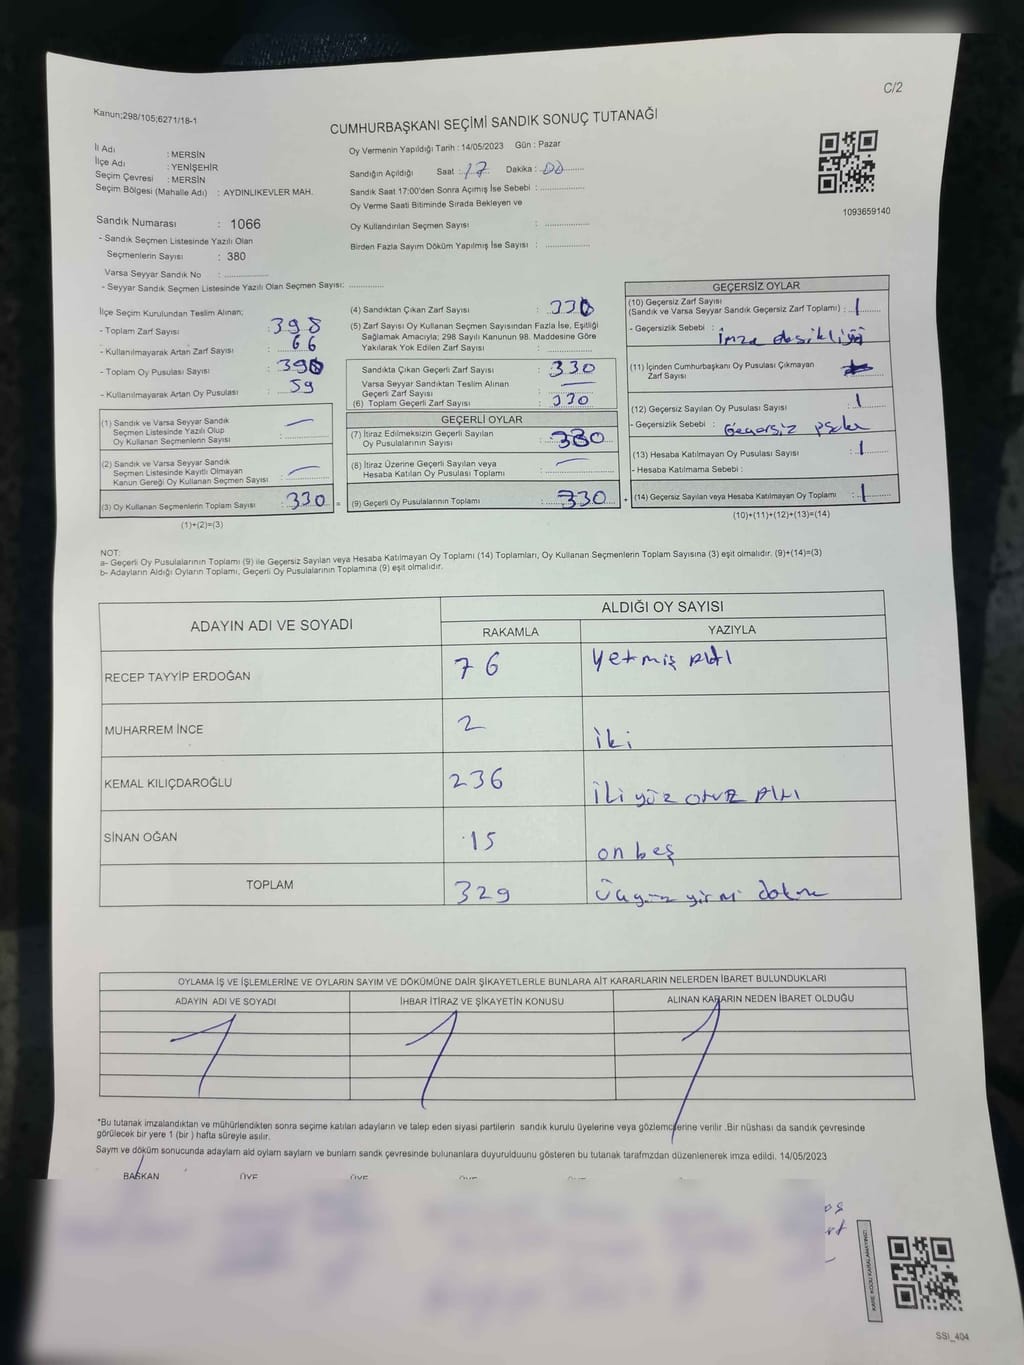 C/2
Kanun;298/105;6271/18-1
CUMHURBAŞKANI SEÇİMİ SANDIK SONUÇ TUTANAĞI
İl Adı : MERSİN
İlçe Adı : YENİŞEHİR
Seçim Çevresi : MERSİN
Seçim Bölgesi (Mahalle Adı) : AYDINLIKEVLER MAH.
Sandık Numarası : 1066
- Sandık Seçmen Listesinde Yazılı Olan
Seçmenlerin Sayısı : 380
Varsa Seyyar Sandık No :
- Seyyar Sandık Seçmen Listesinde Yazılı Olan Seçmen Sayısı:
Oy Vermenin Yapıldığı Tarih : 14/05/2023 Gün : Pazar
Sandığın Açıldığı Saat : 17 Dakika : 00
Sandık Saat 17:00'den Sonra Açımış İse Sebebi :
Oy Verme Saati Bitiminde Sırada Bekleyen ve
Oy Kullandırılan Seçmen Sayısı :
Birden Fazla Sayım Döküm Yapılmış İse Sayısı :
1093659140
İlçe Seçim Kurulundan Teslim Alınan;
- Toplam Zarf Sayısı : 398
- Kullanılmayarak Artan Zarf Sayısı : 66
- Toplam Oy Pusulası Sayısı : 390
- Kullanılmayarak Artan Oy Pusulası : 59
(1) Sandık ve Varsa Seyyar Sandık
Seçmen Listesinde Yazılı Olup
Oy Kullanan Seçmenlerin Sayısı : —
(2) Sandık ve Varsa Seyyar Sandık
Seçmen Listesinde Kayıtlı Olmayan
Kanun Gereği Oy Kullanan Seçmen Sayısı : —
(3) Oy Kullanan Seçmenlerin Toplam Sayısı : 330 =
(1)+(2)=(3)
(4) Sandıktan Çıkan Zarf Sayısı : 330
(5) Zarf Sayısı Oy Kullanan Seçmen Sayısından Fazla İse, Eşitliği
Sağlamak Amacıyla; 298 Sayılı Kanunun 98. Maddesine Göre
Yakılarak Yok Edilen Zarf Sayısı :
Sandıkta Çıkan Geçerli Zarf Sayısı : 330
Varsa Seyyar Sandıktan Teslim Alınan
Geçerli Zarf Sayısı : —
(6) Toplam Geçerli Zarf Sayısı : 330
GEÇERLİ OYLAR
(7) İtiraz Edilmeksizin Geçerli Sayılan
Oy Pusulalarının Sayısı : 330
(8) İtiraz Üzerine Geçerli Sayılan veya
Hesaba Katılan Oy Pusulası Toplamı : —
(9) Geçerli Oy Pusulalarının Toplamı : 330 +
GEÇERSİZ OYLAR
(10) Geçersiz Zarf Sayısı
(Sandık ve Varsa Seyyar Sandık Geçersiz Zarf Toplamı) : 1
- Geçersizlik Sebebi : imza
(11) İçinden Cumhurbaşkanı Oy Pusulası Çıkmayan
Zarf Sayısı :
(12) Geçersiz Sayılan Oy Pusulası Sayısı : 1
- Geçersizlik Sebebi : Geçersiz
(13) Hesaba Katılmayan Oy Pusulası Sayısı : 1
- Hesaba Katılmama Sebebi :
(14) Geçersiz Sayılan veya Hesaba Katılmayan Oy Toplamı : 1
(10)+(11)+(12)+(13)=(14)
NOT:
a- Geçerli Oy Pusulalarının Toplamı (9) ile Geçersiz Sayılan veya Hesaba Katılmayan Oy Toplamı (14) Toplamları, Oy Kullanan Seçmenlerin Toplam Sayısına (3) eşit olmalıdır. (9)+(14)=(3)
b- Adayların Aldığı Oyların Toplamı, Geçerli Oy Pusulalarının Toplamına (9) eşit olmalıdır.
ADAYIN ADI VE SOYADI ALDIĞI OY SAYISI
RAKAMLA YAZIYLA
RECEP TAYYİP ERDOĞAN 76 yetmiş Altı
MUHARREM İNCE 2 iki
KEMAL KILIÇDAROĞLU 236 iki yüz otuz Altı
SİNAN OĞAN 15 on beş
TOPLAM 329 üçyüz yirmi dokuz
OYLAMA İŞ VE İŞLEMLERİNE VE OYLARIN SAYIM VE DÖKÜMÜNE DAİR ŞİKAYETLERLE BUNLARA AİT KARARLARIN NELERDEN İBARET BULUNDUKLARI
ADAYIN ADI VE SOYADI İHBAR İTİRAZ VE ŞİKAYETİN KONUSU ALINAN KARARIN NEDEN İBARET OLDUĞU
*Bu tutanak imzalandıktan ve mühürlendikten sonra seçime katılan adayların ve talep eden siyasi partilerin sandık kurulu üyelerine veya gözlemcilerine verilir .Bir nüshası da sandık çevresinde
görülecek bir yere 1 (bir ) hafta süreyle asılır.
Sayım ve döküm sonucunda adayların ald oyların sayların ve bunların sandk çevresinde bulunanlara duyurulduunu gösteren bu tutanak tarafmzdan düzenlenerek imza edildi. 14/05/2023
BAŞKAN ÜYE ÜYE
SSİ_404